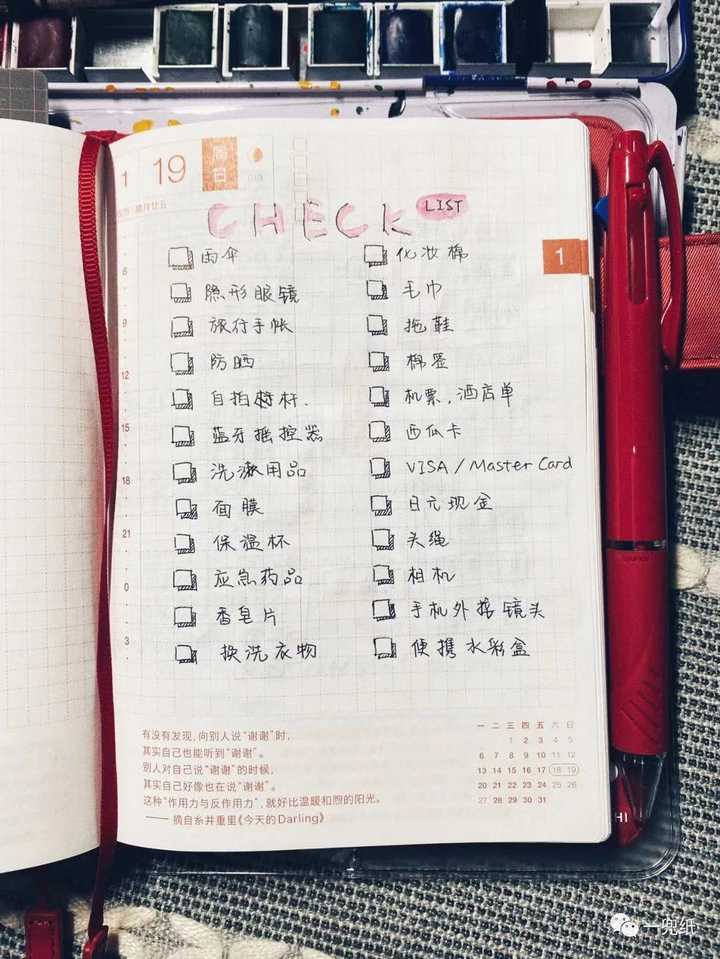 1 19 周日
腊月廿五
CHECK LIST
1
雨伞
隐形眼镜
旅行手帐
防晒
自拍杆.
蓝牙摇控器
洗漱用品
面膜
保温杯
应急药品
香皂片
换洗衣物
化妆棉
毛巾
拖鞋
棉签
机票,酒店单
西瓜卡
VISA/MasterCard
日元现金
头绳
相机
手机外接镜头
便携水彩盒
6
9
12
15
18
21
0
3
有没有发现,向别人说“谢谢”时,
其实自己也能听到“谢谢”。
别人对自己说“谢谢”的时候,
其实自己好像也在说“谢谢”。
这种“作用力与反作用力”,就好比温暖和煦的阳光。
—— 摘自糸井重里《今天的Darling》
一 二 三 四 五 六 日
1 2 3 4 5
6 7 8 9 10 11 12
13 14 15 16 17 18 19
20 21 22 23 24 25 26
27 28 29 30 31
HI
一兜纸